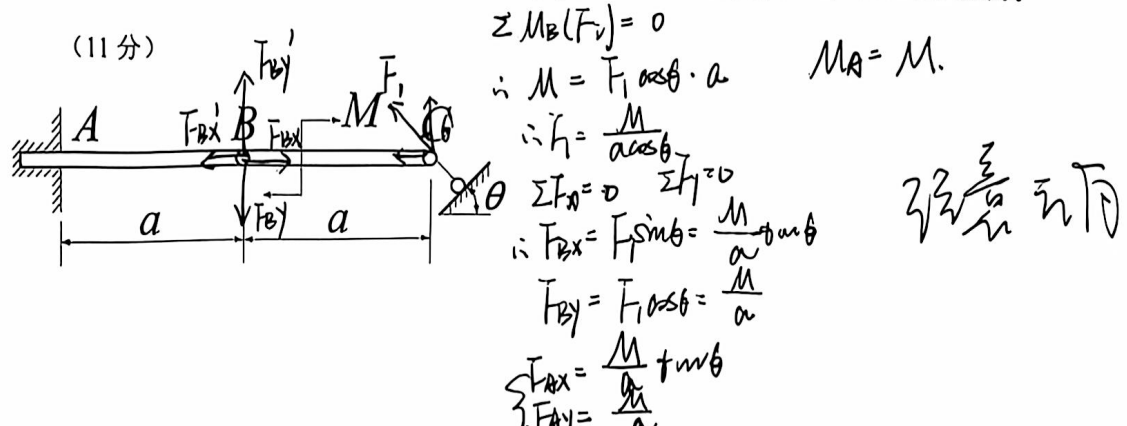 (11分)
F_BY'
F_1
M
A
F_BX'
B
F_BX
θ
F_BY
θ
a
a
Σ M_B(F_i) = 0
∴ M = F_1 cosθ · a
∴ F_1 = M / (a cosθ)
ΣF_x = 0 ΣF_y = 0
∴ F_BX = F_1 sinθ = M/a tanθ
F_BY = F_1 cosθ = M/a
{ F_AX = M/a tanθ
F_AY = M/a
M_A = M.